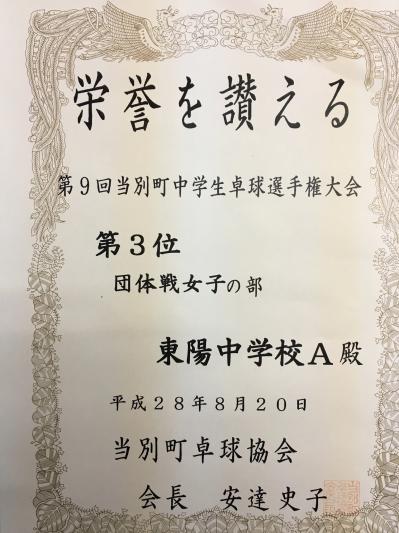 栄誉を讃える
第9回当別町中学生卓球選手権大会
第3位
団体戦女子の部
東陽中学校A殿
平成28年8月20日
当別町卓球協会
会長 安達史子